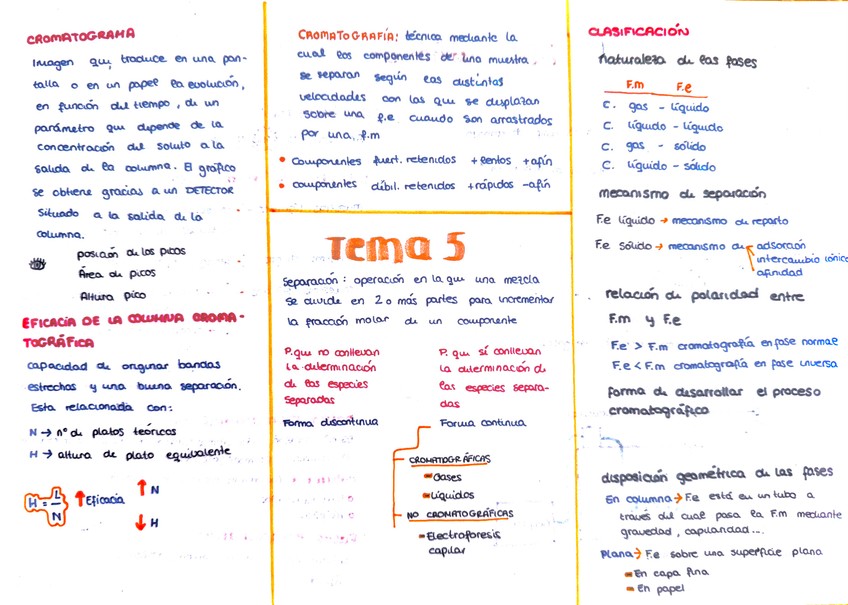 CROMATOGRAMA
Imagen que traduce en una pan-
talla o en un papel la evolución,
en función del tiempo, de un
parámetro que depende de la
concentración del soluto a la
salida de la columna. El gráfico
se obtiene gracias a un DETECTOR
situado a la salida de la
columna.
posición de los picos
Área de picos
Altura pico
EFICACIA DE LA COLUMNA CROMA-
TOGRÁFICA
capacidad de originar bandas
estrechas y una buena separación.
Esta relacionada con:
N → nº de platos teóricos
H → altura de plato equivalente
H = L/N
↑ Eficacia
↑ N
↓ H
CROMATOGRAFÍA: técnica mediante la
cual los componentes de una muestra,
se separan según las distintas
velocidades con las que se desplazan
sobre una f.e cuando son arrastrados
por una, f.m
• componentes fuert. retenidos +lentos +afín
• componentes débil. retenidos +rápidos -afín
Tema 5
separación: operación en la que una mezcla
se divide en 2 o más partes para incrementar
la fracción molar de un componente
P. que no conllevan
la determinación
de las especies
separadas
Forma discontinua
P. que sí conllevan
la determinación de
las especies separa-
das
Forma continua
CROMATOGRÁFICAS
Gases
Líquidos
NO CROMATOGRÁFICAS
Electroforesis
capilar
CLASIFICACIÓN
naturaleza de las fases
F.m F.e
C. gas - líquido
C. líquido - líquido
C. gas - sólido
C. líquido - sólido
mecanismo de separación
F.e líquido → mecanismo de reparto
F.e sólido → mecanismo de adsorción
intercambio iónico
afinidad
relación de polaridad entre
F.m y F.e
F.e > F.m cromatografía en fase normal
F.e < F.m cromatografía en fase inversa
forma de desarrollar el proceso
cromatográfico
disposición geométrica de las fases
En columna → F.e está en un tubo a
través del cual pasa la F.m mediante
gravedad, capilaridad...
Plana → F.e sobre una superficie plana
En capa fina
En papel